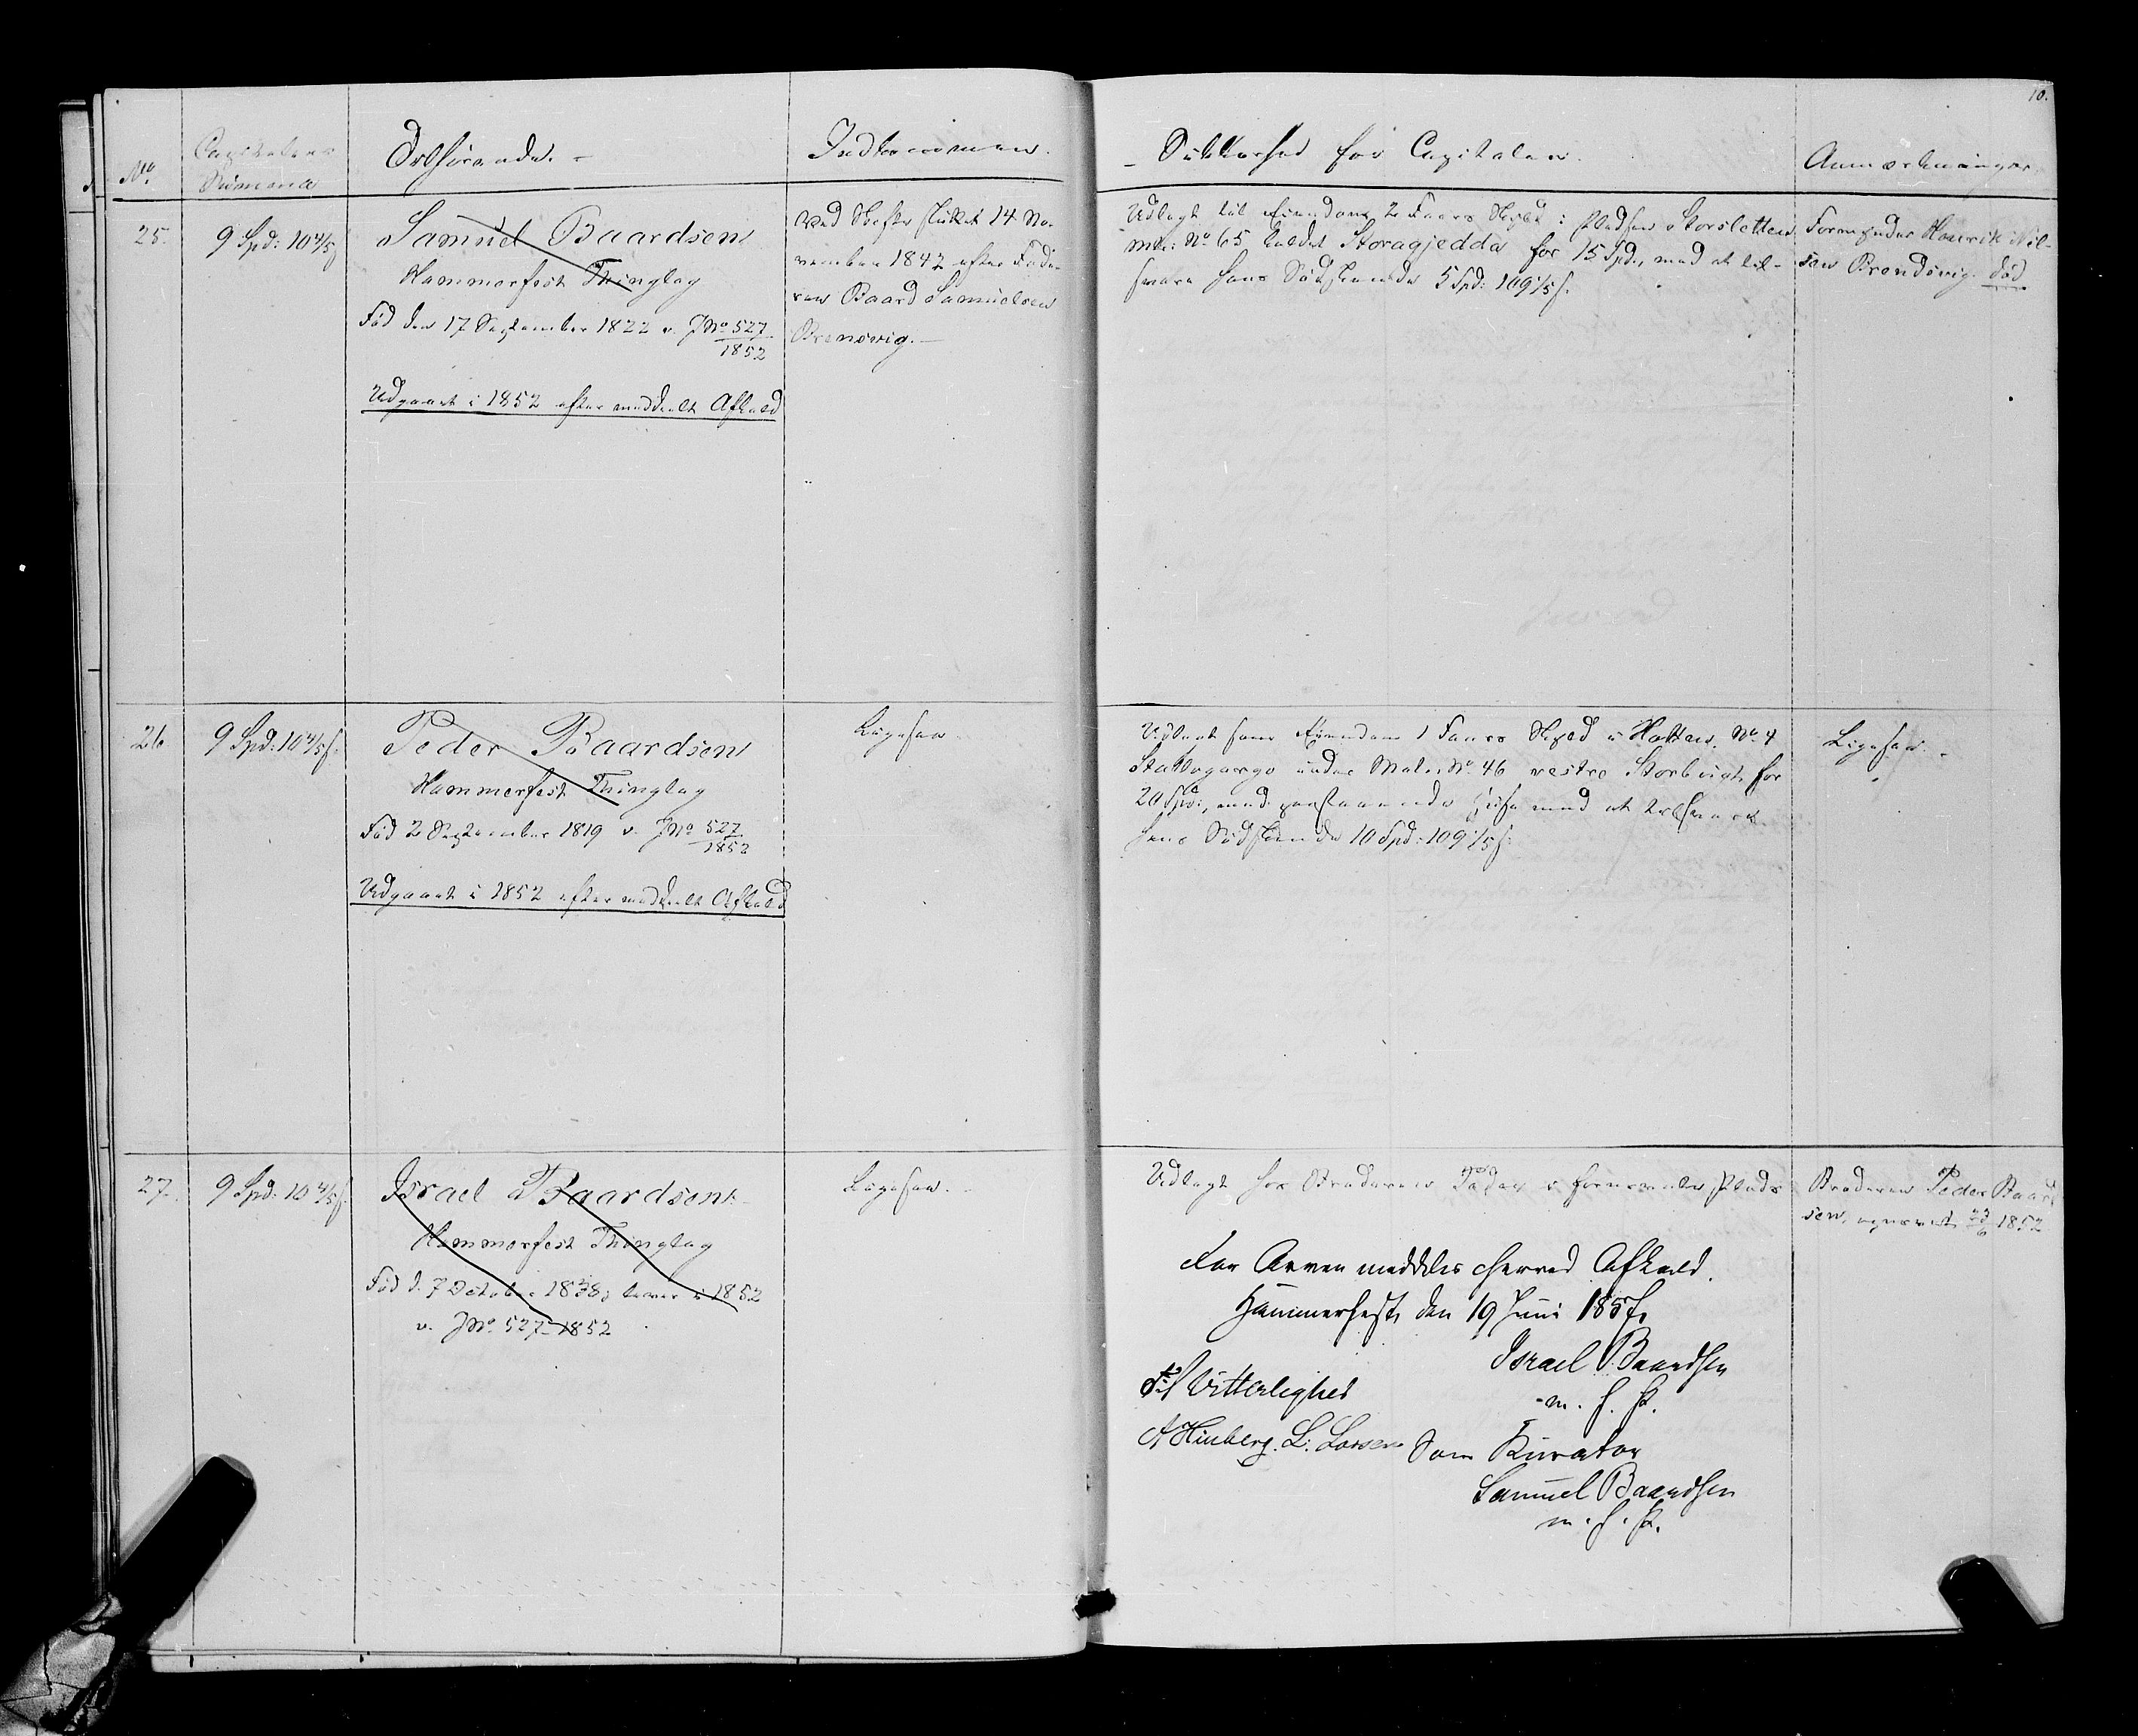 10.
No.
Capitalens
Størrelse
Tilhørende.
Indkommen.
Sikkerhed for Capitalen.
Anmærkninger
25.
9 Spd: 10 4/5 s
Samuel Baardsen
Hammerfest Thinglag
Fød den 17 September 1822 v. J No 527
1852
Udgaaet i 1852 efter meddelt Afkald
Ved Skifte sluttet 14 No-
vember 1842 efter Fade-
ren Baard Samuelsen
Brensvig.
Udlagt til Eiendom 2 Faers Skyld i Pladsen Storsletten
Mtr: No 65 kaldet Storagjedda for 15 Spd, med at til-
svare hans Sødskende 5 Spd: 109 1/5 s.
Formynder Henrik Nil-
sen Brendsvig. død
26
9 Spd: 10 4/5 s.
Peder Baardsen
Hammerfest Thinglag
Fød 2 September 1819 v. J No 527
1852
Udgaaet i 1852 efter meddeelt Afkald
Ligesaa.
Udlagt som Eiendom 1 Faers Skyld i No 4
under Matr. No 46 vestre for
20 Spd:, med paastaaende Huse med at tilsvare
hans Sødskende 10 Spd: 109 1/5 s.
Ligesaa.
27.
9 Spd: 10 4/5 s
Israel Baardsen
Hammerfest Thinglag
Fød d. 7 October 1828, i 1852
v. J No. 527-1852
Ligesaa.
Udlagt hos Broderen Peder i fornævnte Plads
Broderen Peder Baard-
sen, 1852
For Arven meddeles herved Afkald.
Hammerfest den 19 Juni 1857.
Israel Baardsen
m. f. P.
Til Vitterlighed
A Hinberg. L: Larsen
Som Kurator
Samuel Baardsen
m. f. P.